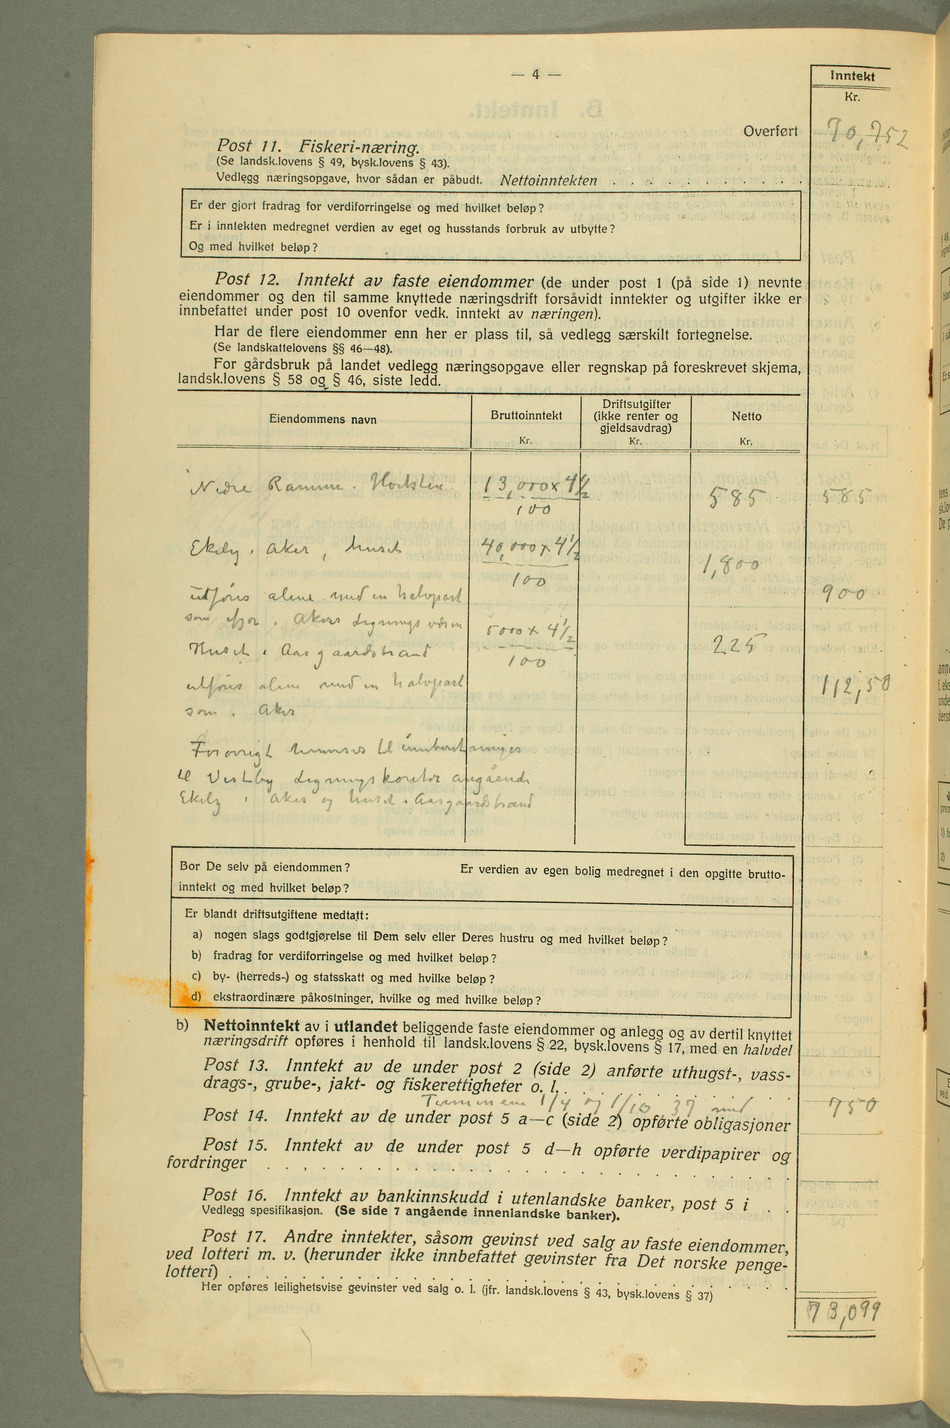 — 4 —
Inntekt
Kr.
Overført 70,752
Post 11. Fiskeri-næring.
(Se landsk.lovens § 49, bysk.lovens § 43).
Vedlegg næringsopgave, hvor sådan er påbudt. Nettoinntekten . . . . . . . . . .
Er der gjort fradrag for verdiforringelse og med hvilket beløp?
Er i inntekten medregnet verdien av eget og husstands forbruk av utbytte?
Og med hvilket beløp?
Post 12. Inntekt av faste eiendommer (de under post 1 (på side 1) nevnte
eiendommer og den til samme knyttede næringsdrift forsåvidt inntekter og utgifter ikke er
innbefattet under post 10 ovenfor vedk. inntekt av næringen).
Har de flere eiendommer enn her er plass til, så vedlegg særskilt fortegnelse.
(Se landskattelovens §§ 46—48).
For gårdsbruk på landet vedlegg næringsopgave eller regnskap på foreskrevet skjema,
landsk.lovens § 58 og § 46, siste ledd.
Eiendommens navn
Bruttoinntekt
Kr.
Driftsutgifter
(ikke renter og
gjeldsavdrag)
Kr.
Netto
Kr.
Nedre Ramme. Hvitsten 13,000 x 4½ 585 585
100
Ekely i Aker, huset 40,000 x 4½ 1,800
100
utføris alene med en halvpart 900
som ifjor i Akers Ligningsvæsen
5000 x 4½
Huset i Aasgaardstrand 225
100
utføris alene med en halvpart 112,50
som i Aker
Forøvrigt henvises til innberetninger
til Vestby Ligningskontor angående
Ekely i Aker og huset i Aasgaardstrand
Bor De selv på eiendommen? Er verdien av egen bolig medregnet i den opgitte brutto-
inntekt og med hvilket beløp?
Er blandt driftsutgiftene medtatt:
a) nogen slags godtgjørelse til Dem selv eller Deres hustru og med hvilket beløp?
b) fradrag for verdiforringelse og med hvilket beløp?
c) by- (herreds-) og statsskatt og med hvilke beløp?
d) ekstraordinære påkostninger, hvilke og med hvilke beløp?
b) Nettoinntekt av i utlandet beliggende faste eiendommer og anlegg og av dertil knyttet
næringsdrift opføres i henhold til landsk.lovens § 22, bysk.lovens § 17, med en halvdel
Post 13. Inntekt av de under post 2 (side 2) anførte uthugst-, vass-
drags-, grube-, jakt- og fiskerettigheter o. l. . . . . . . . . .
Terminene 1/4 og 1/10 39 med 750
Post 14. Inntekt av de under post 5 a—c (side 2) opførte obligasjoner
Post 15. Inntekt av de under post 5 d—h opførte verdipapirer og
fordringer . . . . . . . . . . . . . . . . . . .
Post 16. Inntekt av bankinnskudd i utenlandske banker, post 5 i . .
Vedlegg spesifikasjon. (Se side 7 angående innenlandske banker).
Post 17. Andre inntekter, såsom gevinst ved salg av faste eiendommer,
ved lotteri m. v. (herunder ikke innbefattet gevinster fra Det norske penge-
lotteri) . . . . . . . . . . . . . . . . . . . .
Her opføres leilighetsvise gevinster ved salg o. l. (jfr. landsk.lovens § 43, bysk.lovens § 37)
73,099